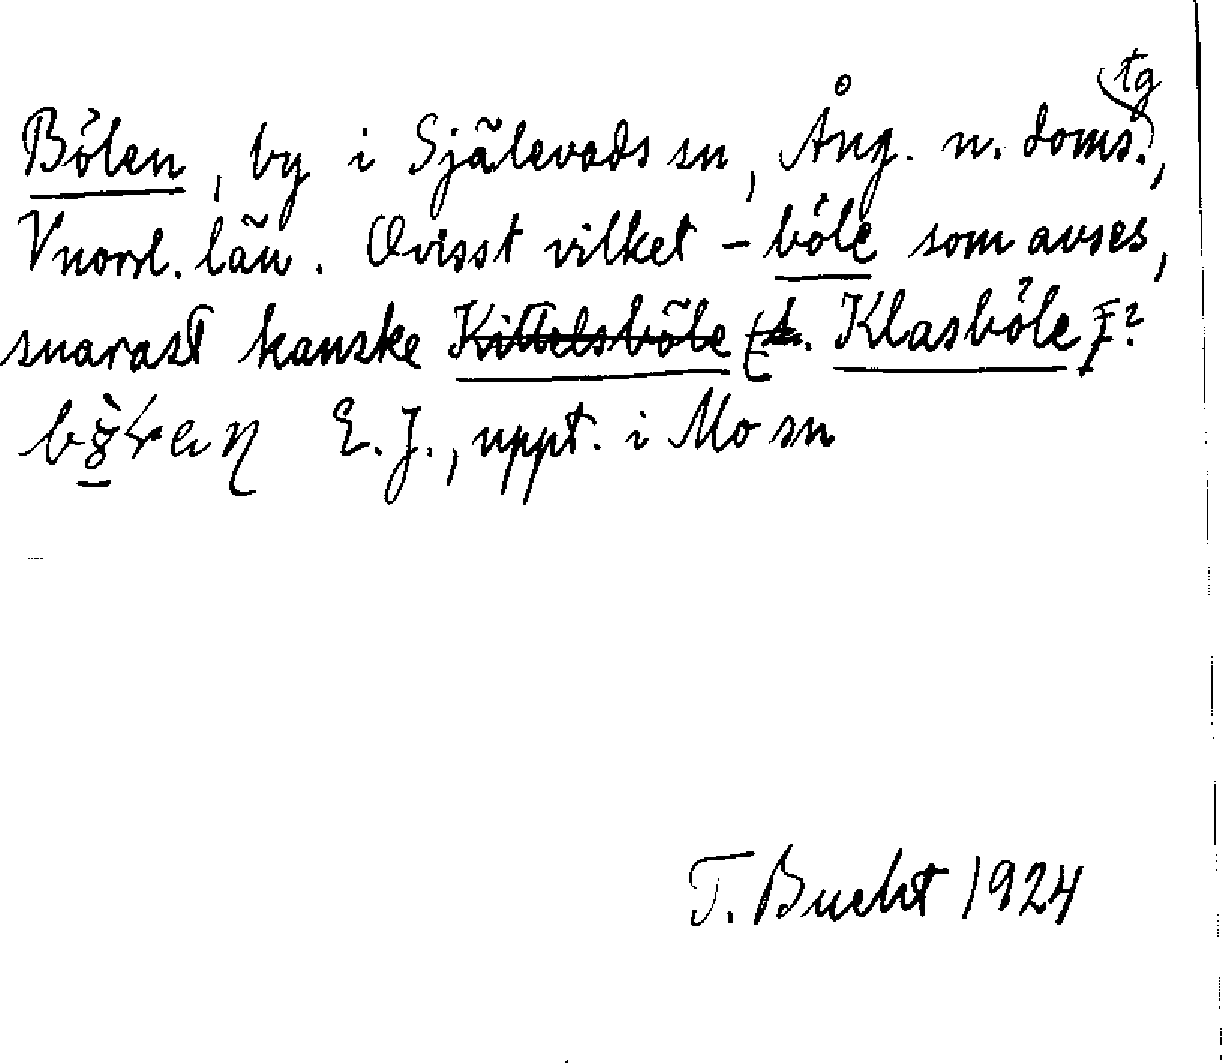 Bölen, by i Själevads sn, Ång. n. doms.tg,
Vnorrl. län. Ovisst vilket -böle som avses,
snarast kanske Kittelsböle (l. Klasböle)?
E. J., uppt. i Mo sn
T. Bucht 1924